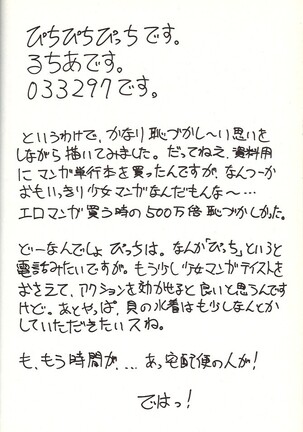 ぴちぴちぴっちです。
るちあです。
033297です。
というわけで、かなり恥づかし〜い思いを
しながら描いてみました。だってねえ、資料用
にマンガ単行本を買ったんですが、なんつーか
おもいっきり少女マンガなんだもんな〜…
エロマンガ買う時の500万倍恥づかしかった。
どーなんでしょ ぴっちは。なんか「ぴっち」というと
電話みたいですが。もう少し少女マンガテイストを
おさえて、アクションを効かせると良いと思うんです
けど。あとやっぱ、貝の水着はも少しなんとか
していただきたいスね。
も、もう時間が、... あっ宅配便の人が!
ではっ!